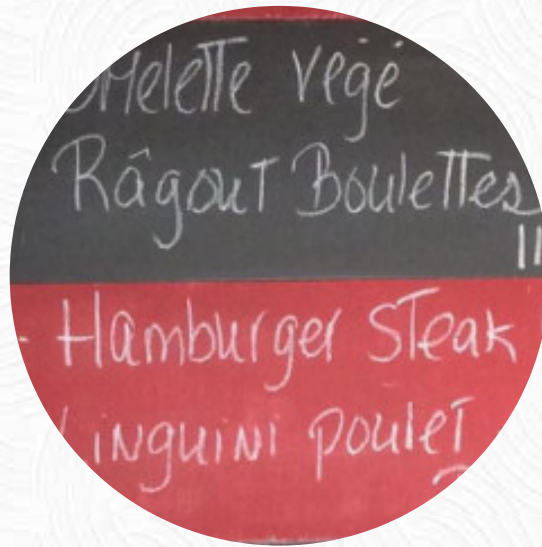 Omelette végé
Râgout Boulettes
11
- Hamburger Steak
Linguini poulet